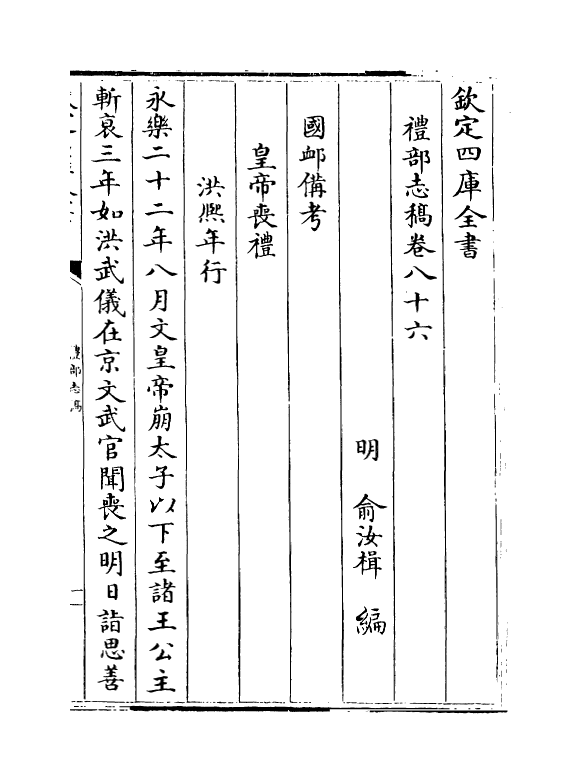 欽定四庫全書
禮部志稿卷八十六
明 俞汝楫 編
國䘏備考
皇帝喪禮
洪熈年行
永樂二十二年八月文皇帝崩太子以下至諸王公主
斬衰三年如洪武儀在京文武官聞喪之明日詣思善
禮部志稿